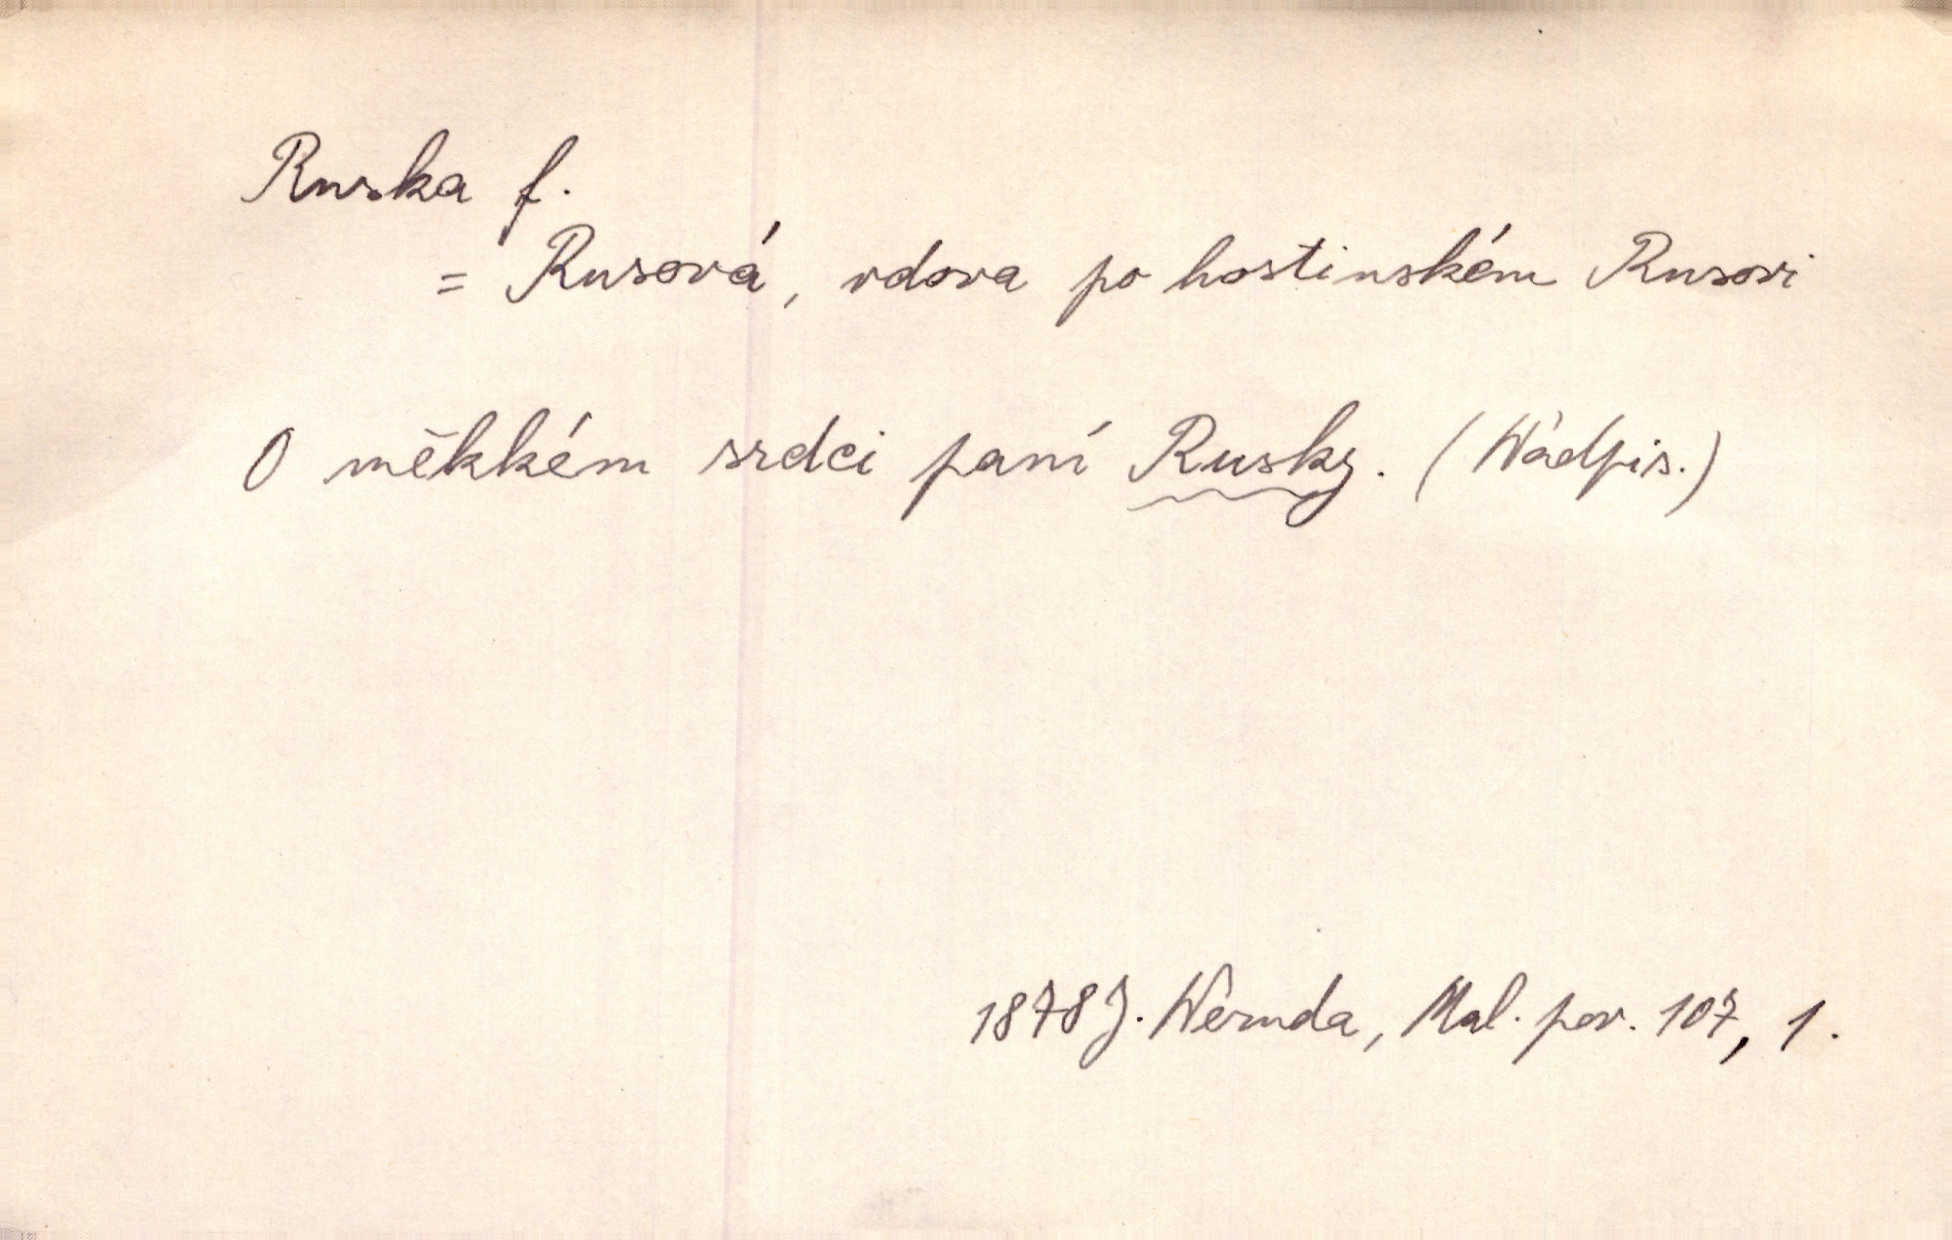 Ruska f.
= Rusová, vdova po hostinském Rusovi
O měkkém srdci paní Rusky. (Nadpis.)
1878 J. Neruda, Mal. pov. 107, 1.